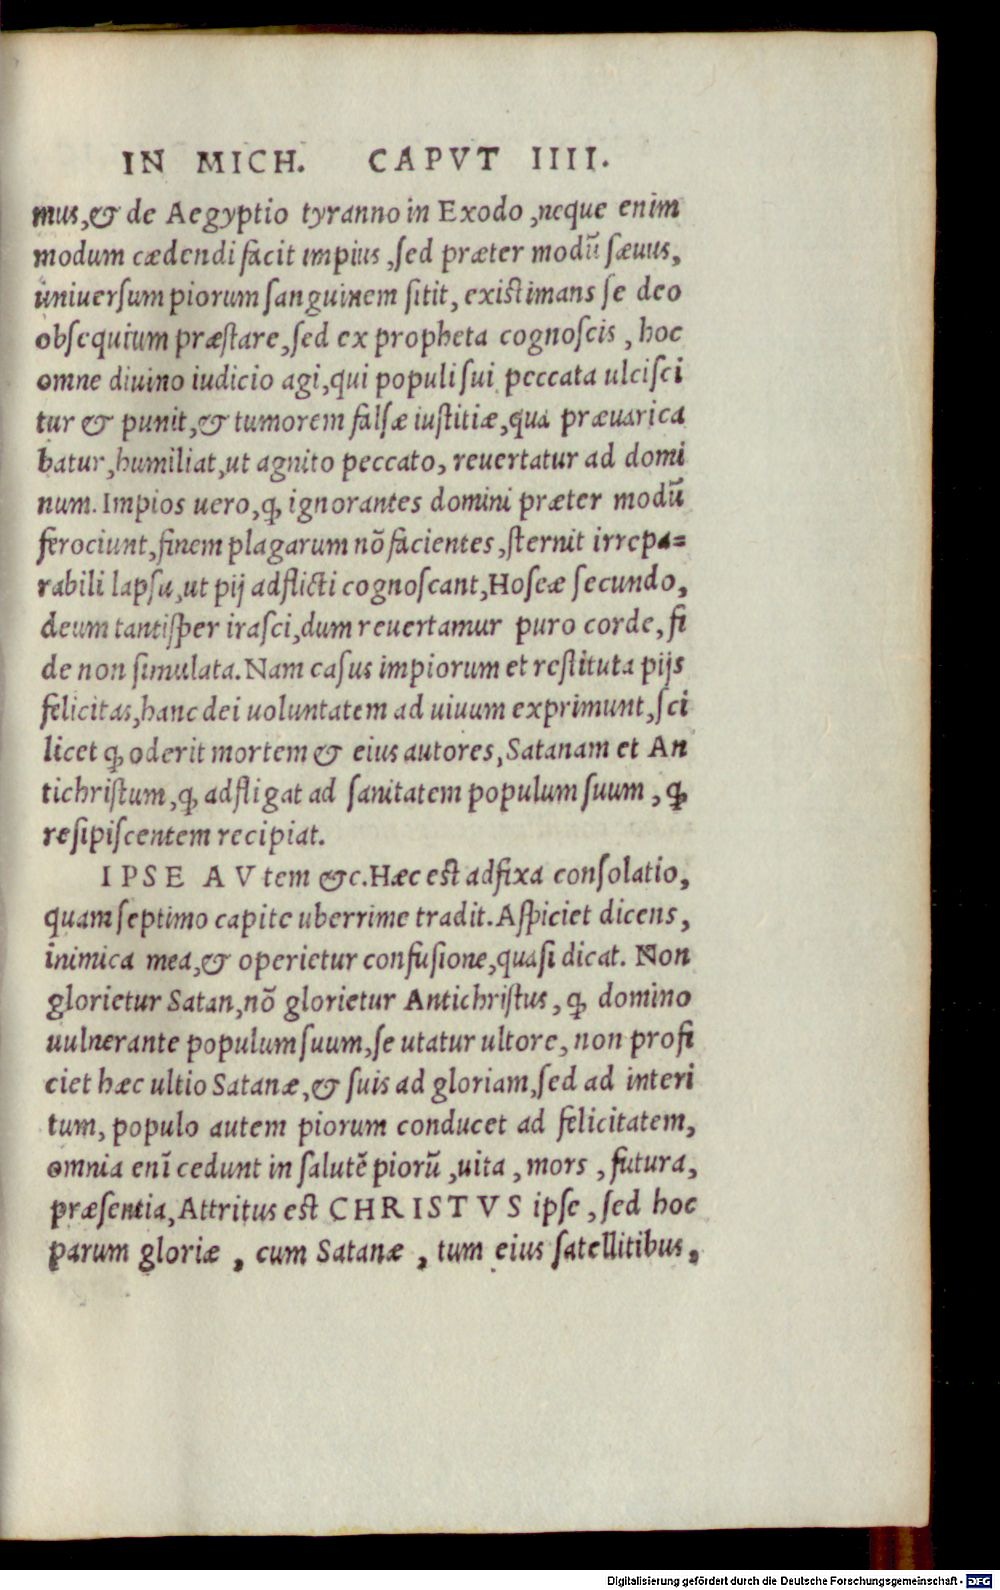 IN MICH. CAPVT IIII.
mus,& de Aegyptio tyranno in Exodo ,neque enim
modum cædendi facit impius ,ſed præter modū ſæuus,
uniuerſum piorum ſanguinem ſitit, exiſtimans ſe deo
obſequium præſtare,ſed ex propheta cognoſcis , hoc
omne diuino iudicio agi,qui populi ſui peccata ulciſci
tur & punit,& tumorem falſæ iuſtitiæ,qua præuarica
batur,humiliat,ut agnito peccato, reuertatur ad domi
num. Impios uero,ꝗ ignorantes domini præter modū
ferociunt,finem plagarum nõ facientes ,ſternit irrepa=
rabili lapſu,ut pij adflicti cognoſcant,Hoſeæ ſecundo,
deum tantiſper iraſci,dum reuertamur puro corde, fi
de non ſimulata. Nam caſus impiorum et reſtituta pijs
felicitas,hanc dei uoluntatem ad uiuum exprimunt,ſci
licet ꝗ oderit mortem & eius autores, Satanam et An
tichriſtum ,ꝗ adfligat ad ſanitatem populum ſuum , ꝗ
reſipiſcentem recipiat.
IPSE AVtem &c. Hæc eſt adfixa conſolatio,
quam ſeptimo capite uberrime tradit. Aſpiciet dicens ,
inimica mea,& operietur confuſione,quaſi dicat. Non
glorietur Satan,nõ glorietur Antichriſtus , ꝗ domino
uulnerante populum ſuum,ſe utatur ultore, non profi
ciet hæc ultio Satanæ,& ſuis ad gloriam,ſed ad interi
tum, populo autem piorum conducet ad felicitatem,
omnia enī cedunt in ſalutē piorū ,uita , mors , futura,
præſentia, Attritus eſt CHRISTVS ipſe , ſed hoc
parum gloriæ , cum Satanæ , tum eius ſatellitibus,
Digitalisierung gefördert durch die Deutsche Forschungsgemeinschaft - DFG